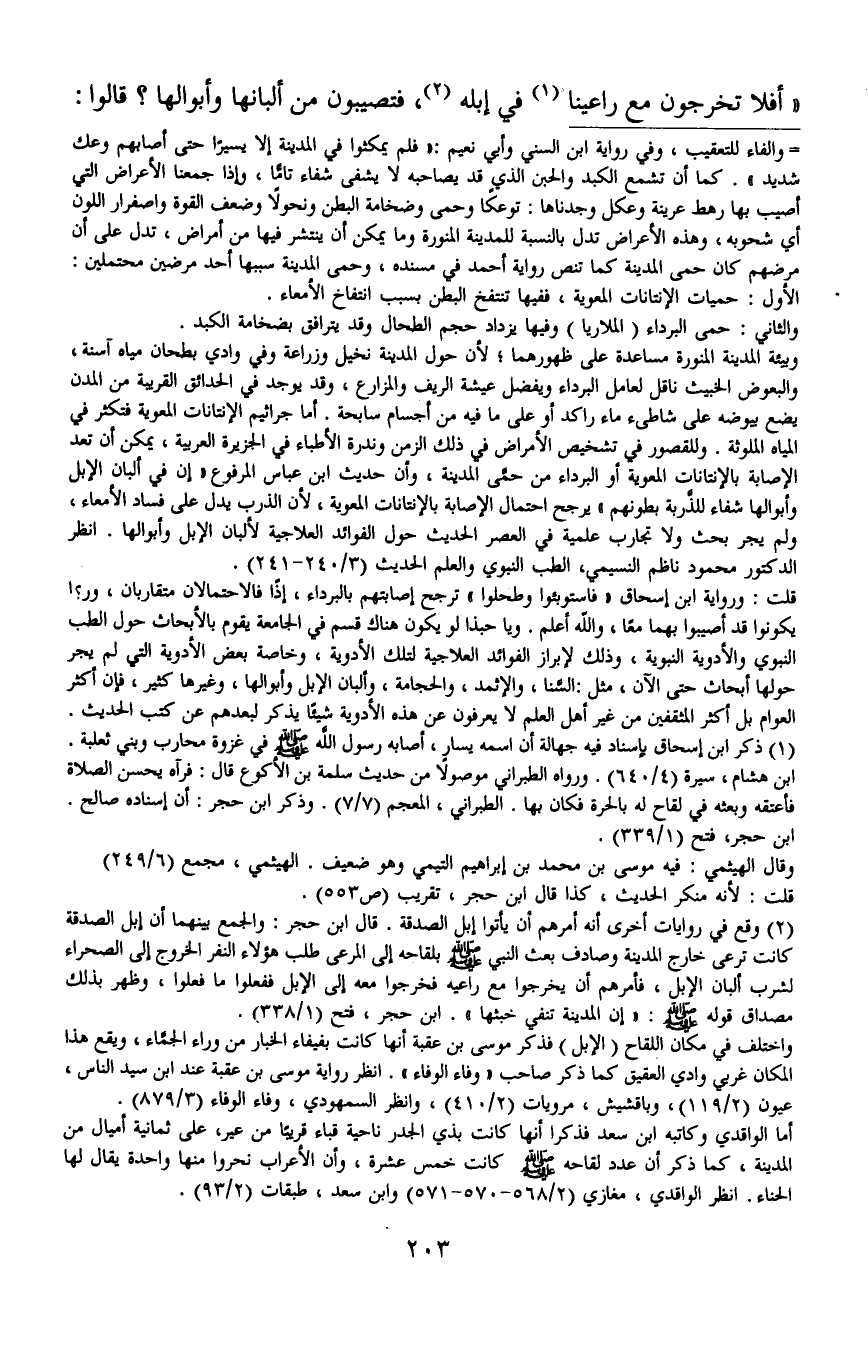 « أفلا تخرجون مع راعينا (١) في إبله (٢)، فتصيبون من ألبانها وأبوالها ؟ قالوا :
= والفاء للتعقيب ، وفي رواية ابن السني وأبي نعيم :« فلم يمكثوا في المدينة إلا يسيرًا حتى أصابهم وعك
شديد » . كما أن تشمع الكبد والحبن الذي قد يصاحبه لا يشفى شفاء تامًّا ، وإذا جمعنا الأعراض التي
أصيب بها رهط عرينة وعكل وجدناها : توعكًا وحمى وضخامة البطن ونحولًا وضعف القوة واصفرار اللون
أي شحوبه ، وهذه الأعراض تدل بالنسبة للمدينة المنورة وما يمكن أن ينتشر فيها من أمراض ، تدل على أن
مرضهم كان حمى المدينة كما تنص رواية أحمد في مسنده ، وحمى المدينة سببها أحد مرضين محتملين :
الأول : حميات الإنتانات المعوية ، ففيها تنتفخ البطن بسبب انتفاخ الأمعاء .
والثاني : حمى البرداء ( الملاريا ) وفيها يزداد حجم الطحال وقد يترافق بضخامة الكبد .
وبيئة المدينة المنورة مساعدة على ظهورهما ؛ لأن حول المدينة نخيل وزراعة وفي وادي بطحان مياه آسنة ،
والبعوض الخبيث ناقل لعامل البرداء ويفضل عيشة الريف والمزارع ، وقد يوجد في الحدائق القريبة من المدن
يضع بيوضه على شاطىء ماء راكد أو على ما فيه من أجسام سابحة . أما جراثيم الإنتانات المعوية فتكثر في
المياه الملوثة . وللقصور في تشخيص الأمراض في ذلك الزمن وندرة الأطباء في الجزيرة العربية ، يمكن أن تعد
الإصابة بالإنتانات المعوية أو البرداء من حمَّى المدينة ، وأن حديث ابن عباس المرفوع « إن في ألبان الإبل
وأبوالها شفاء للذَّربة بطونهم » يرجح احتمال الإصابة بالإنتانات المعوية ، لأن الذرب يدل على فساد الأمعاء ،
ولم يجر بحث ولا تجارب علمية في العصر الحديث حول الفوائد العلاجية لألبان الإبل وأبوالها . انظر
الدكتور محمود ناظم النسيمي، الطب النبوي والعلم الحديث (٣/٢٤٠-٢٤١) .
قلت : ورواية ابن إسحاق « فاستوبئوا وطحلوا » ترجح إصابتهم بالبرداء ، إذًا فالاحتمالان متقاربان ،
يكونوا قد أصيبوا بهما معًا ، واللَّه أعلم . ويا حبذا لو يكون هناك قسم في الجامعة يقوم بالأبحاث حول الطب
النبوي والأدوية النبوية ، وذلك لإبراز الفوائد العلاجية لتلك الأدوية ، وخاصة بعض الأدوية التي لم يجر
حولها أبحاث حتى الآن ، مثل :السَّنا ، والإثمد ، والحجامة ، وألبان الإبل وأبوالها ، وغيرها كثير ، فإن أكثر
العوام بل أكثر المثقفين من غير أهل العلم لا يعرفون عن هذه الأدوية شيئًا يذكر لبعدهم عن كتب الحديث .
(١) ذكر ابن إسحاق بإسناد فيه جهالة أن اسمه يسار ، أصابه رسول اللَّه ﷺ في غزوة محارب وبني ثعلبة .
ابن هشام ، سيرة (٤/٦٤٠) . ورواه الطبراني موصولًا من حديث سلمة بن الأكوع قال : فرآه يحسن الصلاة
فأعتقه وبعثه في لقاح له بالحرة فكان بها . الطبراني ، المعجم (٧/٧) . وذكر ابن حجر : أن إسناده صالح .
ابن حجر، فتح (١/٣٣٩) .
وقال الهيثمي : فيه موسى بن محمد بن إبراهيم التيمي وهو ضعيف . الهيثمي ، مجمع (٦/٢٤٩)
قلت : لأنه منكر الحديث ، كذا قال ابن حجر ، تقريب (ص٥٥٣) .
(٢) وقع في روايات أخرى أنه أمرهم أن يأتوا إبل الصدقة . قال ابن حجر : والجمع بينهما أن إبل الصدقة
كانت ترعى خارج المدينة وصادف بعث النبي ﷺ بلقاحه إلى المرعى طلب هؤلاء النفر الخروج إلى الصحراء
لشرب ألبان الإبل ، فأمرهم أن يخرجوا مع راعيه فخرجوا معه إلى الإبل ففعلوا ما فعلوا ، وظهر بذلك
مصداق قوله ﷺ : « إن المدينة تنفي خبثها » . ابن حجر ، فتح (١/٣٣٨) .
واختلف في مكان اللقاح ( الإبل ) فذكر موسى بن عقبة أنها كانت بفيفاء الخبار من وراء الجمَّاء ، ويقع هذا
المكان غربي وادي العقيق كما ذكر صاحب « وفاء الوفاء » . انظر رواية موسى بن عقبة عند ابن سيد الناس ،
عيون (٢/١١٩)، وباقشيش ، مرويات (٢/٤١٠) ، وانظر السمهودي ، وفاء الوفاء (٣/٨٧٩) .
أما الواقدي وكاتبه ابن سعد فذكرا أنها كانت بذي الجدر ناحية قباء قريبًا من عير، على ثمانية أميال من
المدينة ، كما ذكر أن عدد لقاحه ﷺ كانت خمس عشرة ، وأن الأعراب نحروا منها واحدة يقال لها
الحناء . انظر الواقدي ، مغازي (٢/٥٦٨-٥٧٠-٥٧١) وابن سعد ، طبقات (٢/٩٣) .
٢٠٣